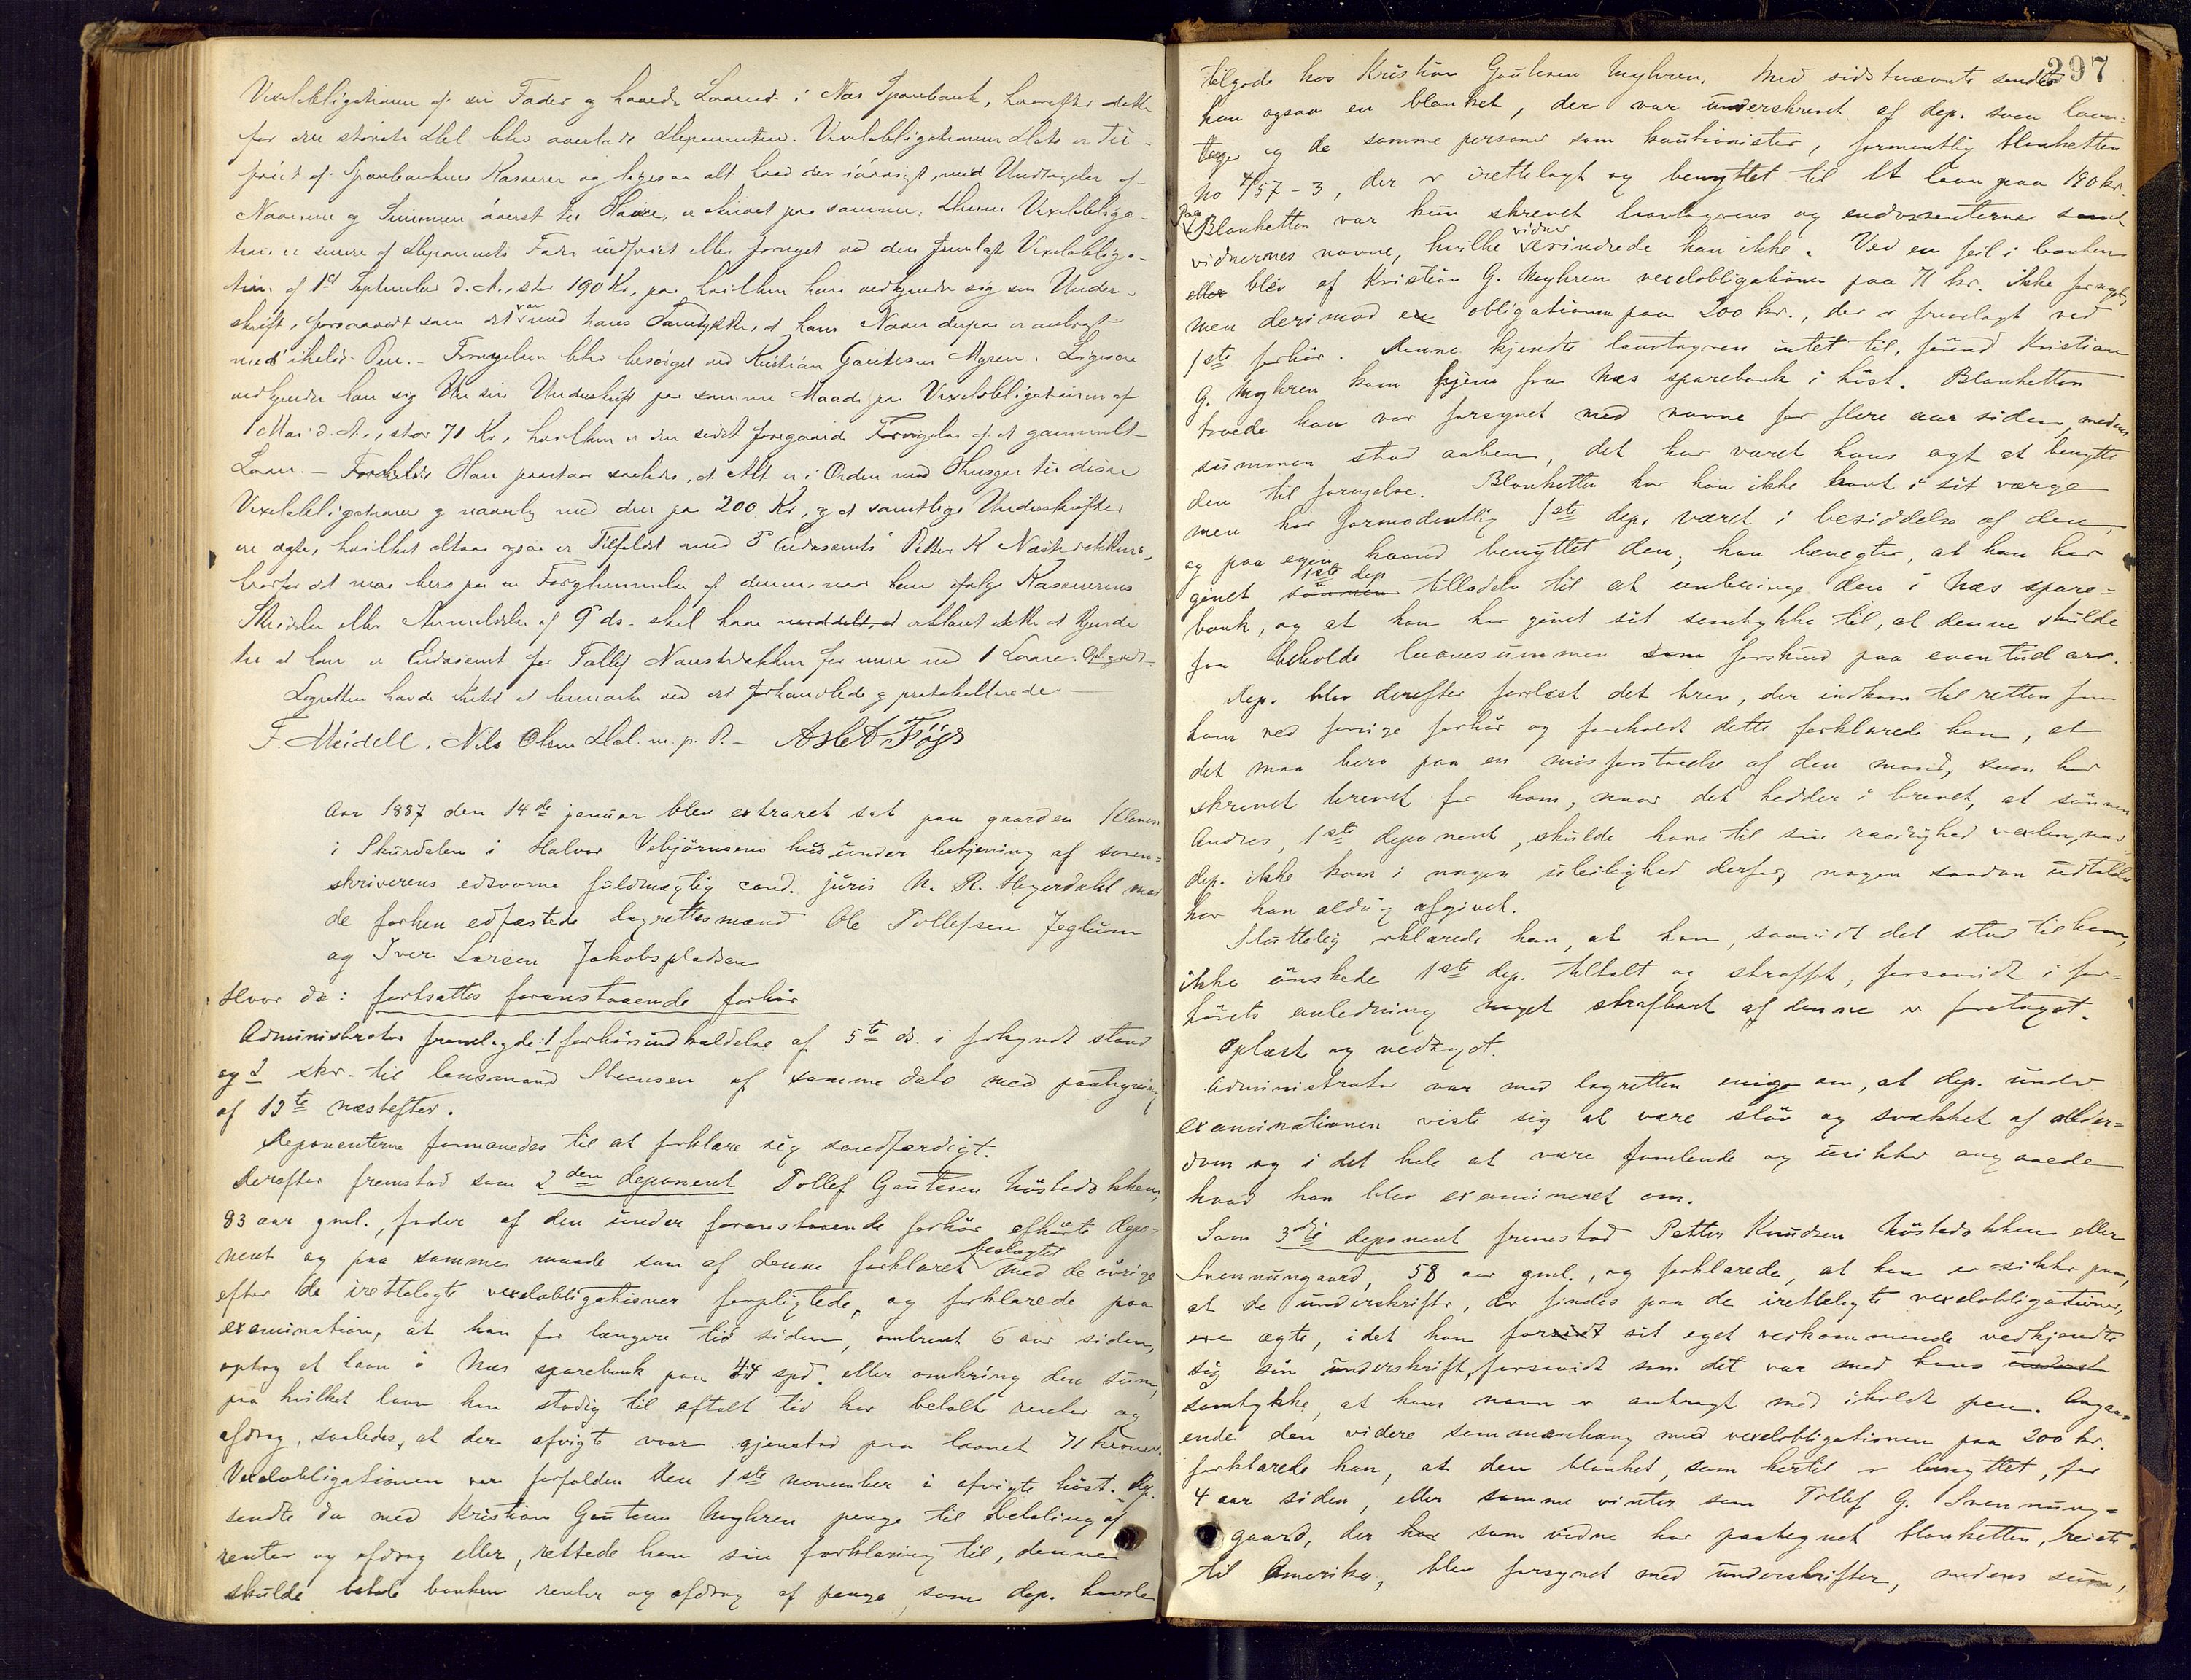 Vexelobligationen af sin Fader og hævede Laanet i Næs Sparebank, hvorefter dette
for den største Del blev overladt Deponenten. Vexelobligationens Dato er til-
føiet af Sparebankens Kasserer og ligesaa alt hvad der iøvrigt, med Undtagelse af
Navnene og Summen øverst til Høire, er skrevet paa samme. Denne Vexelobliga-
tion er senere af Deponentens Fader indfriet eller fornyet ved den fremlagte Vexelobliga-
tion af 1st September d. A., stor 190 Kr., paa hvilken han vedkjender sig sin Under-
skrift, forsaavidt som det var med hans Samtykke, at hans Navn derpaa er anbragt
med iholdt Pen. – Fornyelsen blev besørget ved Kristian Gautesen Myren. Ligesaa
vedkjender han sig sin Underskrift paa samme Maade paa Vexelobligationen af
1 Mai d. A., stor 71 Kr., hvilken er den sidst foregaaede Fornyelse af et gammelt
Laan. – Han paastaar saaledes, at Alt er i Orden med Hensyn til disse
Vexelobligationer og navnlig med den paa 200 Kr., og at samtlige Underskrifter
ere ægte, hvilket altsaa ogsaa er Tilfældet med Endossents Petter K
hvorfor det maa bero paa en Forglemmelse af denne, naar han ifølge Kassererens
Skrivelse eller Anmeldelse af 9 ds. skal have meddelt, at erklæret ikke at kjende
til at han er Endossent for Tollef for mere end 1 Laan.
Lagretten havde Intet at bemærke ved det forhandlede og protokollerede –
F. Meidell. Nils Olsen Dal. m. p. P. – Aslet Føgs
Aar 1887 den 14de januar blev extraret sat paa gaarden Kleven
i Skurdalen i Halvor Vebjörnsens hus under betjening af soren-
skriverens edsvorne fuldmægtig cand. juris N. R. Heyerdahl med
de forhen edfæstede lagrettesmænd Ole Tollefsen Jeglum
og Iver Larsen Jakobspladsen
Hvor da: fortsattes foranstaaende forhör
Administrator fremlagde: 1 forhörsindkaldelse af 5te ds. i forkyndt stand
og 2 skr. til lensmand Steensen af samme dato med paategning
af 13te næstefter.
Deponenterne formanedes til at forklare sig sandfærdigt.
Derefter fremstod som 2den deponent Tollef Gautesen
83 aar gml., fader af den under foranstaaende forhör afhörte depo-
nent og paa samme maade som af denne forklaret beslægtet med de övrige
efter de irettelagte vexelobligationer forpligtede, og forklarede paa
examination, at han for længere tid siden, omtrent 6 aar siden,
optog et laan i Næs sparebank paa 44 spd. eller omkring den sum,
paa hvilket laan han stadig til aftalt tid har betalt renter og
afdrag, saaledes, at der afvigte vaar gjenstod paa laanet 71 kroner.
Vexelobligationen var forfalden den 1ste november i afvigte höst. Dep.
sendte da med Kristian Gautesen Myhren penge til betaling af
renter og afdrag eller, rettede han sin forklaring til, denne
skulde betale banken renter og afdrag af penge, som dep. havde
297
tilgode hos Kristian Gautesen Myhren. Med sidstnævnte sendte
han ogsaa en blanket, der var underskrevet af dep. som laan-
tager og de samme personer som kautionister, formentlig blanketten
No 4/57-3, der er irettelagt og benyttet til et laan paa 190 kr.
Paa Blanketten var kun skrevet laantagerens og endossenternes samt
vidnernes navne, hvilke vidner erindrede han ikke. Ved en feil i banken
eller blev af Kristian G. Myhren vexelobligationen paa 71 kr. ikke fornyet,
men derimod en obligationen paa 200 kr., der er fremlagt ved
1ste forhör. Denne kjendte laantageren intet til, förend Kristian
G. Myhren kom hjem fra Næs sparebank i höst. Blanketten
troede han var forsynet med navne for flere aar siden, medens
summen stod aaben, det har været hans agt at benytte
den til fornyelse. Blanketten har han ikke havt i sit værge
men har formodentlig 1ste dep. været i besiddelse af den,
og paa egen haand benyttet den; han benegter, at han har
givet sönnen 1ste dep. tilladelse til at anbringe den i Næs spare-
bank, og at han har givet sit samtykke til, at denne skulde
faa beholde laanesummen som forskud paa eventuel arv.
Dep. blev derefter forelæst det brev, der indkom til retten fra
ham ved forrige forhör og foreholdt dette forklarede han, at
det maa bero paa en misforstaaelse af den mand, som har
skrevet brevet for ham, naar det hedder i brevet, at sönnen
Andres, 1ste deponent, skulde have til sin raadighed vexlen, naar
dep. ikke kom i nogen uleilighed derfor, nogen saadan udtalelse
har han aldrig afgivet.
Sluttelig erklærede han, at han, saavidt det stod til ham,
ikke önskede 1ste dep. tiltalt og straffet, forsaavidt i for-
hörets anledning noget strafbart af denne er foretaget.
Oplæst og vedtaget.
Administrator var med lagretten enige om, at dep. under
examinationen viste sig at være slöv og svækket af alder-
dom og i det hele at være famlende og usikker angaaende
hvad han blev examineret om.
Som 3die deponent fremstod Petter Knudsen eller
Svennungaard, 58 aar gml., og forklarede, at han er sikker paa,
at de underskrifter, der findes paa de irettelagte vexelobligationer,
ere ægte, idet han forsvidt sit eget vedkommende vedkjendte
sig sin underskrift, forsavidt som det var med hans
samtykke, at hans navn er anbragt med iholdt pen. Angaa-
ende den videre sammenhæng med vexelobligationen paa 200 kr.
forklarede han, at den blanket, som hertil er benyttet, for
4 aar siden, eller samme vinter som Tollef G. Svennung-
gaard, der har som vidne har paategnet blanketten, reiste
til Amerika, blev forsynet med underskrifter, medens sum,